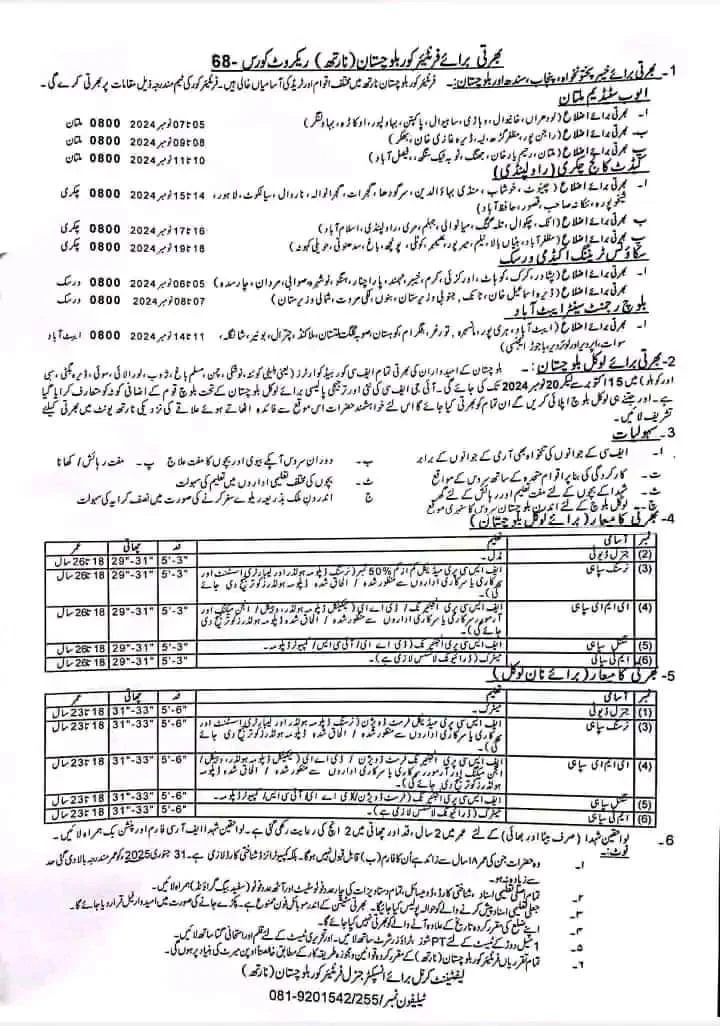 بھرتی برائے فرنٹیئر کور بلوچستان (نارتھ) ریکروٹ کورس -68
1- بھرتی برائے خیبر پختونخواہ، پنجاب، سندھ اور بلوچستان:- فرنٹیئر کور بلوچستان نارتھ میں مختلف اقوام اور ٹریڈ کی آسامیاں خالی ہیں۔ فرنٹیئر کور کی ٹیم مندرجہ ذیل مقامات پر بھرتی کرے گی۔
ایوب سٹیڈیم ملتان
ا- بھرتی برائے اضلاع (لودھراں، خانیوال، وہاڑی، ساہیوال، پاکپتن، بہاولپور، اوکاڑہ، بہاولنگر) 05تا07 نومبر 2024 0800 ملتان
ب- بھرتی برائے اضلاع (راجن پور، مظفر گڑھ، لیہ، ڈیرہ غازی خان، بھکر) 08تا09 نومبر 2024 0800 ملتان
پ- بھرتی برائے اضلاع (ملتان، رحیم یار خان، جھنگ، ٹوبہ ٹیک سنگھ، فیصل آباد) 10تا11 نومبر 2024 0800 ملتان
کیڈٹ کالج چکری (راولپنڈی)
ا- بھرتی برائے اضلاع (چنیوٹ، خوشاب، منڈی بہاؤالدین، سرگودھا، گجرات، گجرانوالہ، نارووال، سیالکوٹ، لاہور، 14تا15 نومبر 2024 0800 چکری
شیخوپورہ، ننکانہ صاحب، قصور، حافظ آباد)
ب- بھرتی برائے اضلاع (اٹک، چکوال، تلہ گنگ، میانوالی، جہلم، مری، راولپنڈی، اسلام آباد) 16تا17 نومبر 2024 0800 چکری
پ- بھرتی برائے اضلاع (مظفر آباد، ہٹیاں بالا، نیلم، میرپور، بھمبر، کوٹلی، پونچھ، باغ، سدھنوتی، حویلی کہوٹہ) 18تا19 نومبر 2024 0800 چکری
سکاؤٹس ٹریننگ اکیڈمی ورسک
ا- بھرتی برائے اضلاع (پشاور، کرک، کوہاٹ، اورکزئی، کرم، خیبر، مہمند، پاراچنار، ہنگو، نوشہرہ، صوابی، مردان، چارسدہ) 05تا06 نومبر 2024 0800 ورسک
بھرتی برائے اضلاع (ڈیرہ اسماعیل خان، ٹانک، جنوبی وزیرستان، بنوں، لکی مروت، شمالی وزیرستان) 07تا08 نومبر 2024 0800 ورسک
بلوچ رجمنٹ سینٹر ایبٹ آباد
ا- بھرتی برائے اضلاع (ایبٹ آباد، ہری پور، مانسہرہ، تورغر، بٹگرام، کوہستان، صوبہ گلگت بلتستان، ملاکنڈ، چترال، بونیر، شانگلہ، 11تا14 نومبر 2024 0800 ایبٹ آباد
سوات، اپر دیر اور لوئر دیر، باجوڑ ایجنسی)
2- بھرتی برائے لوکل بلوچستان:- بلوچستان کے امیدواران کی بھرتی تمام ایف سی کور ہیڈ کوارٹرز (یعنی کوئٹہ، نوشکی، چمن، مسلم باغ، ژوب، لورالائی، سوئی، ڈیرہ بگٹی، سبی
اور کوہلو) میں 15 اکتوبر سے لیکر 20 نومبر 2024 تک کی جائے گی۔ آئی جی ایف سی کی نئی اور ترجیحی پالیسی برائے لوکل بلوچستان کے تحت بلوچ قوم کے اضافی کوٹہ کو متعارف کرایا گیا
ہے۔ اور جتنے ہی لوکل بلوچ اپلائی کریں گے ان تمام کو بھرتی کیا جائے گا اس لئے خواہشمند حضرات اس موقع سے فائدہ اٹھاتے ہوئے علاقے کی نزدیکی نارتھ یونٹ میں بھرتی کیلئے
تشریف لائیں۔
3- سہولیات
ا- ایف سی کے جوانوں کی تنخواہ بھی آرمی کے جوانوں کے برابر ب- دوران سروس آپکے بیوی اور بچوں کا مفت علاج پ- مفت رہائش / کھانا
ت- کارکردگی کی بنا پر اقوام متحدہ کے ساتھ سروس کے مواقع ٹ- بچوں کی مختلف تعلیمی اداروں میں تعلیم کی سہولت
ث- شہدا کے بچوں کے لئے مفت تعلیم اور رہائش کے لئے گھر ج اندرون ملک بذریعہ ریلوے سفر کرنے کی صورت میں نصف کرایہ کی سہولت
چ- لوکل بلوچ کے لئے اندرون بلوچستان سروس کا سنہری موقع
4- بھرتی کا معیار (برائے لوکل بلوچستان)
نمبر آسامی تعلیم قد چھاتی عمر
(2) جنرل ڈیوٹی مڈل۔ 5'-3" 29"-31" 18 تا 26 سال
(3) نرسنگ سپاہی ایف ایس سی پری میڈیکل کم از کم 50% نمبر (نرسنگ ڈپلومہ ہولڈرز اور لیبارٹری اسسٹنٹ اور 5'-3" 29"-31" 18 تا 26 سال
سرکاری یا سرکاری اداروں سے منظور شدہ / الحاق شدہ ڈپلومہ ہولڈرز کو ترجیح دی جائے
گی)۔
(4) ای ایم ای سپاہی ایف ایس سی پری انجینئرنگ / ڈی اے ای (ٹیکنیکل ڈپلومہ ہولڈرز، وہیکل / انجن میکینک اور 5'-3" 29"-31" 18 تا 26 سال
آرمورر، سرکاری یا سرکاری اداروں سے منظور شدہ / الحاق شدہ ڈپلومہ ہولڈرز کو ترجیح دی
جائے گی)
(5) سگنل سپاہی ایف ایس سی پری انجینئرنگ (ڈی اے ای / آئی سی ایس / کمپیوٹر ڈپلومہ۔ 5'-3" 29"-31" 18 تا 26 سال
(6) ایم ٹی سپاہی میٹرک (ڈرائیونگ لائسنس لازمی ہے)۔ 5'-3" 29"-31" 18 تا 26 سال
5- بھرتی کا معیار (برائے نان لوکل)
نمبر آسامی تعلیم قد چھاتی عمر
(1) جنرل ڈیوٹی میٹرک۔ 5'-6" 31"-33" 18 تا 23 سال
(3) نرسنگ سپاہی ایف ایس سی پری میڈیکل فرسٹ ڈویژن (نرسنگ ڈپلومہ ہولڈرز اور لیبارٹری اسسٹنٹ اور 5'-6" 31"-33" 18 تا 23 سال
سرکاری یا سرکاری اداروں سے منظور شدہ / الحاق شدہ ڈپلومہ ہولڈرز کو ترجیح دی جائے
گی)۔
(4) ای ایم ای سپاہی ایف ایس سی پری انجینئرنگ فرسٹ ڈویژن / ڈی اے ای (ٹیکنیکل ڈپلومہ ہولڈرز، وہیکل / 5'-6" 31"-33" 18 تا 23 سال
انجن میکینک اور آرمورر سرکاری یا سرکاری اداروں سے منظور شدہ / الحاق شدہ ڈپلومہ
ہولڈرز کو ترجیح دی جائے گی)۔
(5) سگنل سپاہی ایف ایس سی پری انجینئرنگ (فرسٹ ڈویژن) / ڈی اے ای / آئی سی ایس / کمپیوٹر ڈپلومہ۔ 5'-6" 31"-33" 18 تا 23 سال
(6) ایم ٹی سپاہی میٹرک (ڈرائیونگ لائسنس لازمی ہے)۔ 5'-6" 31"-33" 18 تا 23 سال
6- لواحقین شہدا (صرف بیٹا اور بھائی) کے لئے عمر میں 2 سال، قد اور چھاتی میں 2 انچ کی رعایت رکھی گئی ہے۔ لواحقین شہدا ایف آر سی فارم اور پنشن بک ہمراہ لائیں۔
نوٹ:-
۱- وہ حضرات جن کی عمر ۱۸ سال سے زائد ہے اُن کا فارم (ب) قابل قبول نہیں ہوگا۔ بلکہ کمپیوٹرائزڈ شناختی کارڈ لازمی ہے۔ 31 جنوری 2025 کو عمر مندرجہ بالا دی گئی حد
سے زیادہ نہ ہو۔
۲- تمام اصلی تعلیمی اسناد، شناختی کارڈ، ڈومیسائل، تمام دستاویزات کی چار عدد فوٹو سٹیٹ اور آٹھ عدد فوٹو (سفید بیک گراؤنڈ) ہمراہ لائیں۔
۳- جعلی تعلیمی اسناد پیش کرنے والے کو حوالہ پولیس کیا جائیگا۔ بھرتی سنٹر کے اندر موبائل فون ممنوع ہے۔ پکڑے جانے کی صورت میں امیدوار فیل قرار دیا جائے گا۔
۴- اپنے ضلع کی مقرر کردہ تاریخ کے علاوہ آنے والے کو بھرتی نہیں کیا جائے گا۔
۵- 1 میل دوڑ کے ٹیسٹ کے لئے PT شوز، ٹراؤزر، شرٹ ساتھ لائیں۔ اور تحریری ٹیسٹ کے لئے قلم اور امتحانی گتا ساتھ لائیں۔
۶- تمام تقرریاں فرنٹیئر کور بلوچستان (نارتھ) کے مقرر کردہ قوانین و مجوزہ طریقہ کار کے مطابق خالصتاً اوپن میرٹ کی بنیاد پر ہوں گی۔
لیفٹیننٹ کرنل برائے انسپکٹر جنرل فرنٹیئر کور بلوچستان (نارتھ)
ٹیلیفون نمبر 081-9201542/255/